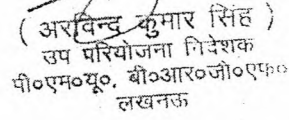 ( अरविन्द कुमार सिंह )
उप परियोजना निदेशक
पी०एम०यू०, बी०आर०जी०एफ०
लखनऊ